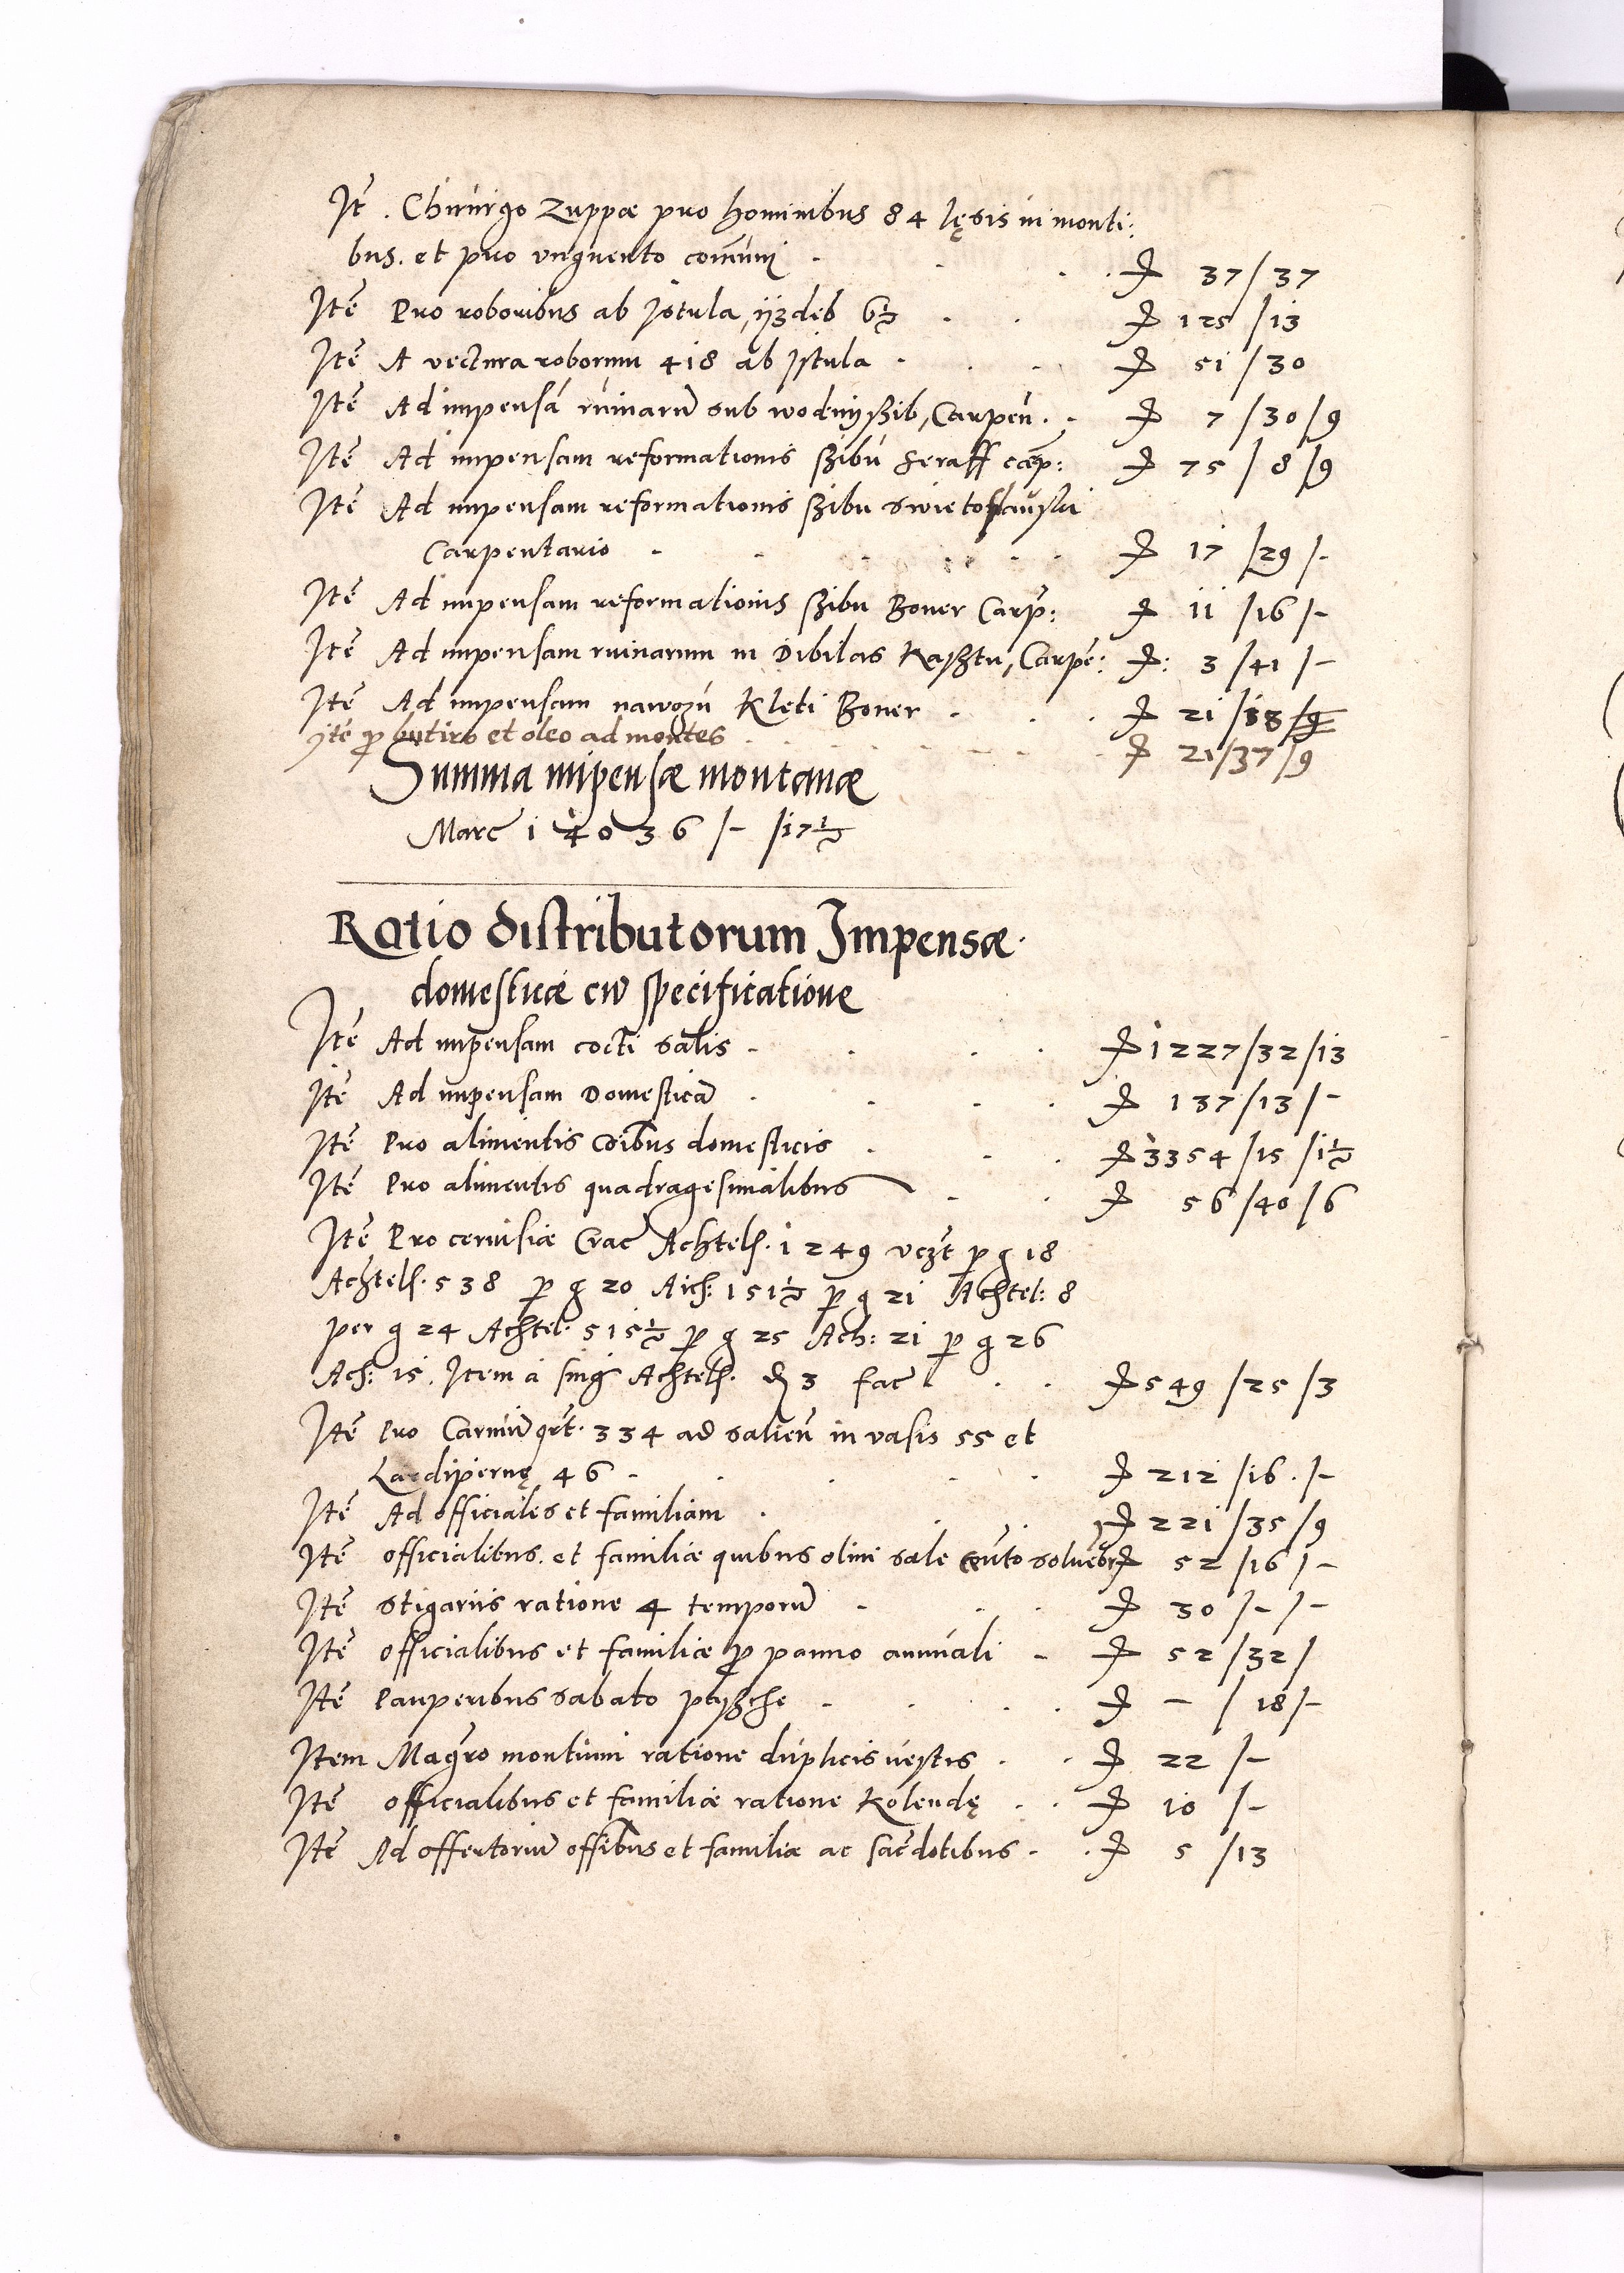 Itē. Chirurgo Zuppæ pro hominibus 84 lęsis in monti:
bus. et pro unguento com̄uni . . . ₰ 37/37
Itē Pro roboribus ab Istula, yzdeb 6½ . . ₰ 125/13
Itē A vectura roborum 418 ab Istula . . . ₰ 51/30
Itē Ad impensā ruinarū sub wodnÿ ßib, Carpen̄. . ₰ 7/30/9
Itē Ad impensam reformationis ßibu Seraff carp: ₰ 75/8/9
Itē Ad impensam reformationis ßibu swietoslawski
Carpentario . . . . . . ₰ 17/29/-
Itē Ad impensam reformationis ßibu Boner Carp̄: ₰ 11/16/-
Itē Ad impensam ruinarum in Dibilas Kaßtu, Carpē: ₰: 3/41/-
Itē Ad impensam nawozu Kleti Boner . . . ₰ 21/38/9
ytē p̱ butiro et oleo ad montes . . . ₰ 21/37/9
Summa impensæ montanæ
Marc 14036/-/17½
Ratio distributorum Impensæ.
domesticæ cū specificatione
Itē Ad impensam cocti salis . . . . ₰ 1227/32/13
Itē Ad impensam Domesticā . . . . ₰ 137/13/-
Itē Pro alimentis cōibus domesticis . . . ₰ 3354/15/1½
Itē Pro alimentis quadragesimalibus . . ₰ 56/40/6
Itē Pro cervisiæ Crac Achtel. 1249 vczt p̱ g 18
Achtel. 538 p̱ g 20 Ach: 151½ p̱ g 21 Achtel: 8
per g 24 Achtel. 515½ p̱ g 25 Ach: 21 p̱ g 26
Ach: 15. Item a sing Achtel. ₰ 3 fac . . ₰ 549/25/3
Itē Pro Carniū qrt. 334 ad saliēn in vasis 55 et
Lardipernę 46 . . . . . ₰ 212/16./-
Itē Ad officiales et familiam . . . ₰ 221/35/9
Itē officialibus. et familiæ quibus olim sale solvebr ₰ 52/16/-
Itē stigariis ratione 4 temporū . . . ₰ 30/-/-
Itē officialibus et familiæ p̱ panno annuali . ₰ 52/32/
Itē Pauperibus sabato . . . . ₰ -/18/-
Item Magr̄o montium ratione duplicis vestis . . ₰ 22/-
Itē officialibus et familiæ ratione Kolendę . . ₰ 10/-
Itē Ad offertoriū offībus et familiæ ac sac̄dotibus . . ₰ 5/13